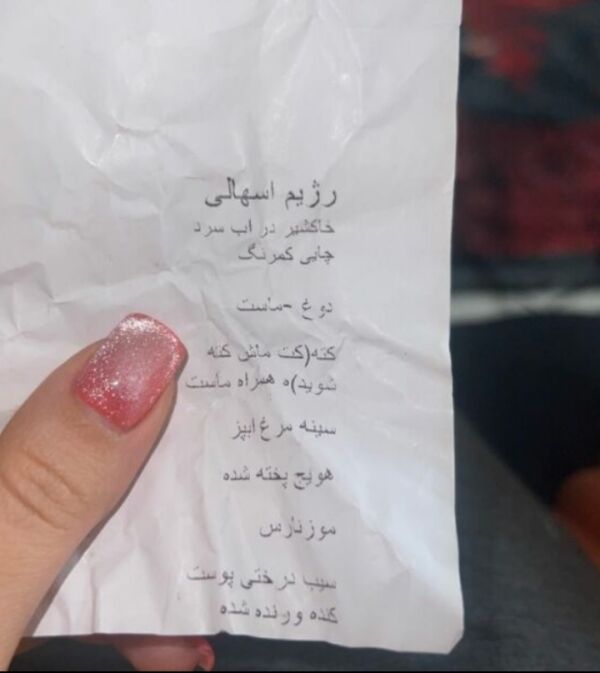 رژیم اسهالی
خاکشیر در اب سرد
چایی کمرنگ
دوغ -ماست
کته(کت ماش کته
شوید)ه همراه ماست
سینه مرغ ابپز
هویج پخته شده
موز نارس
سیب درختی پوست
کنده ورنده شده